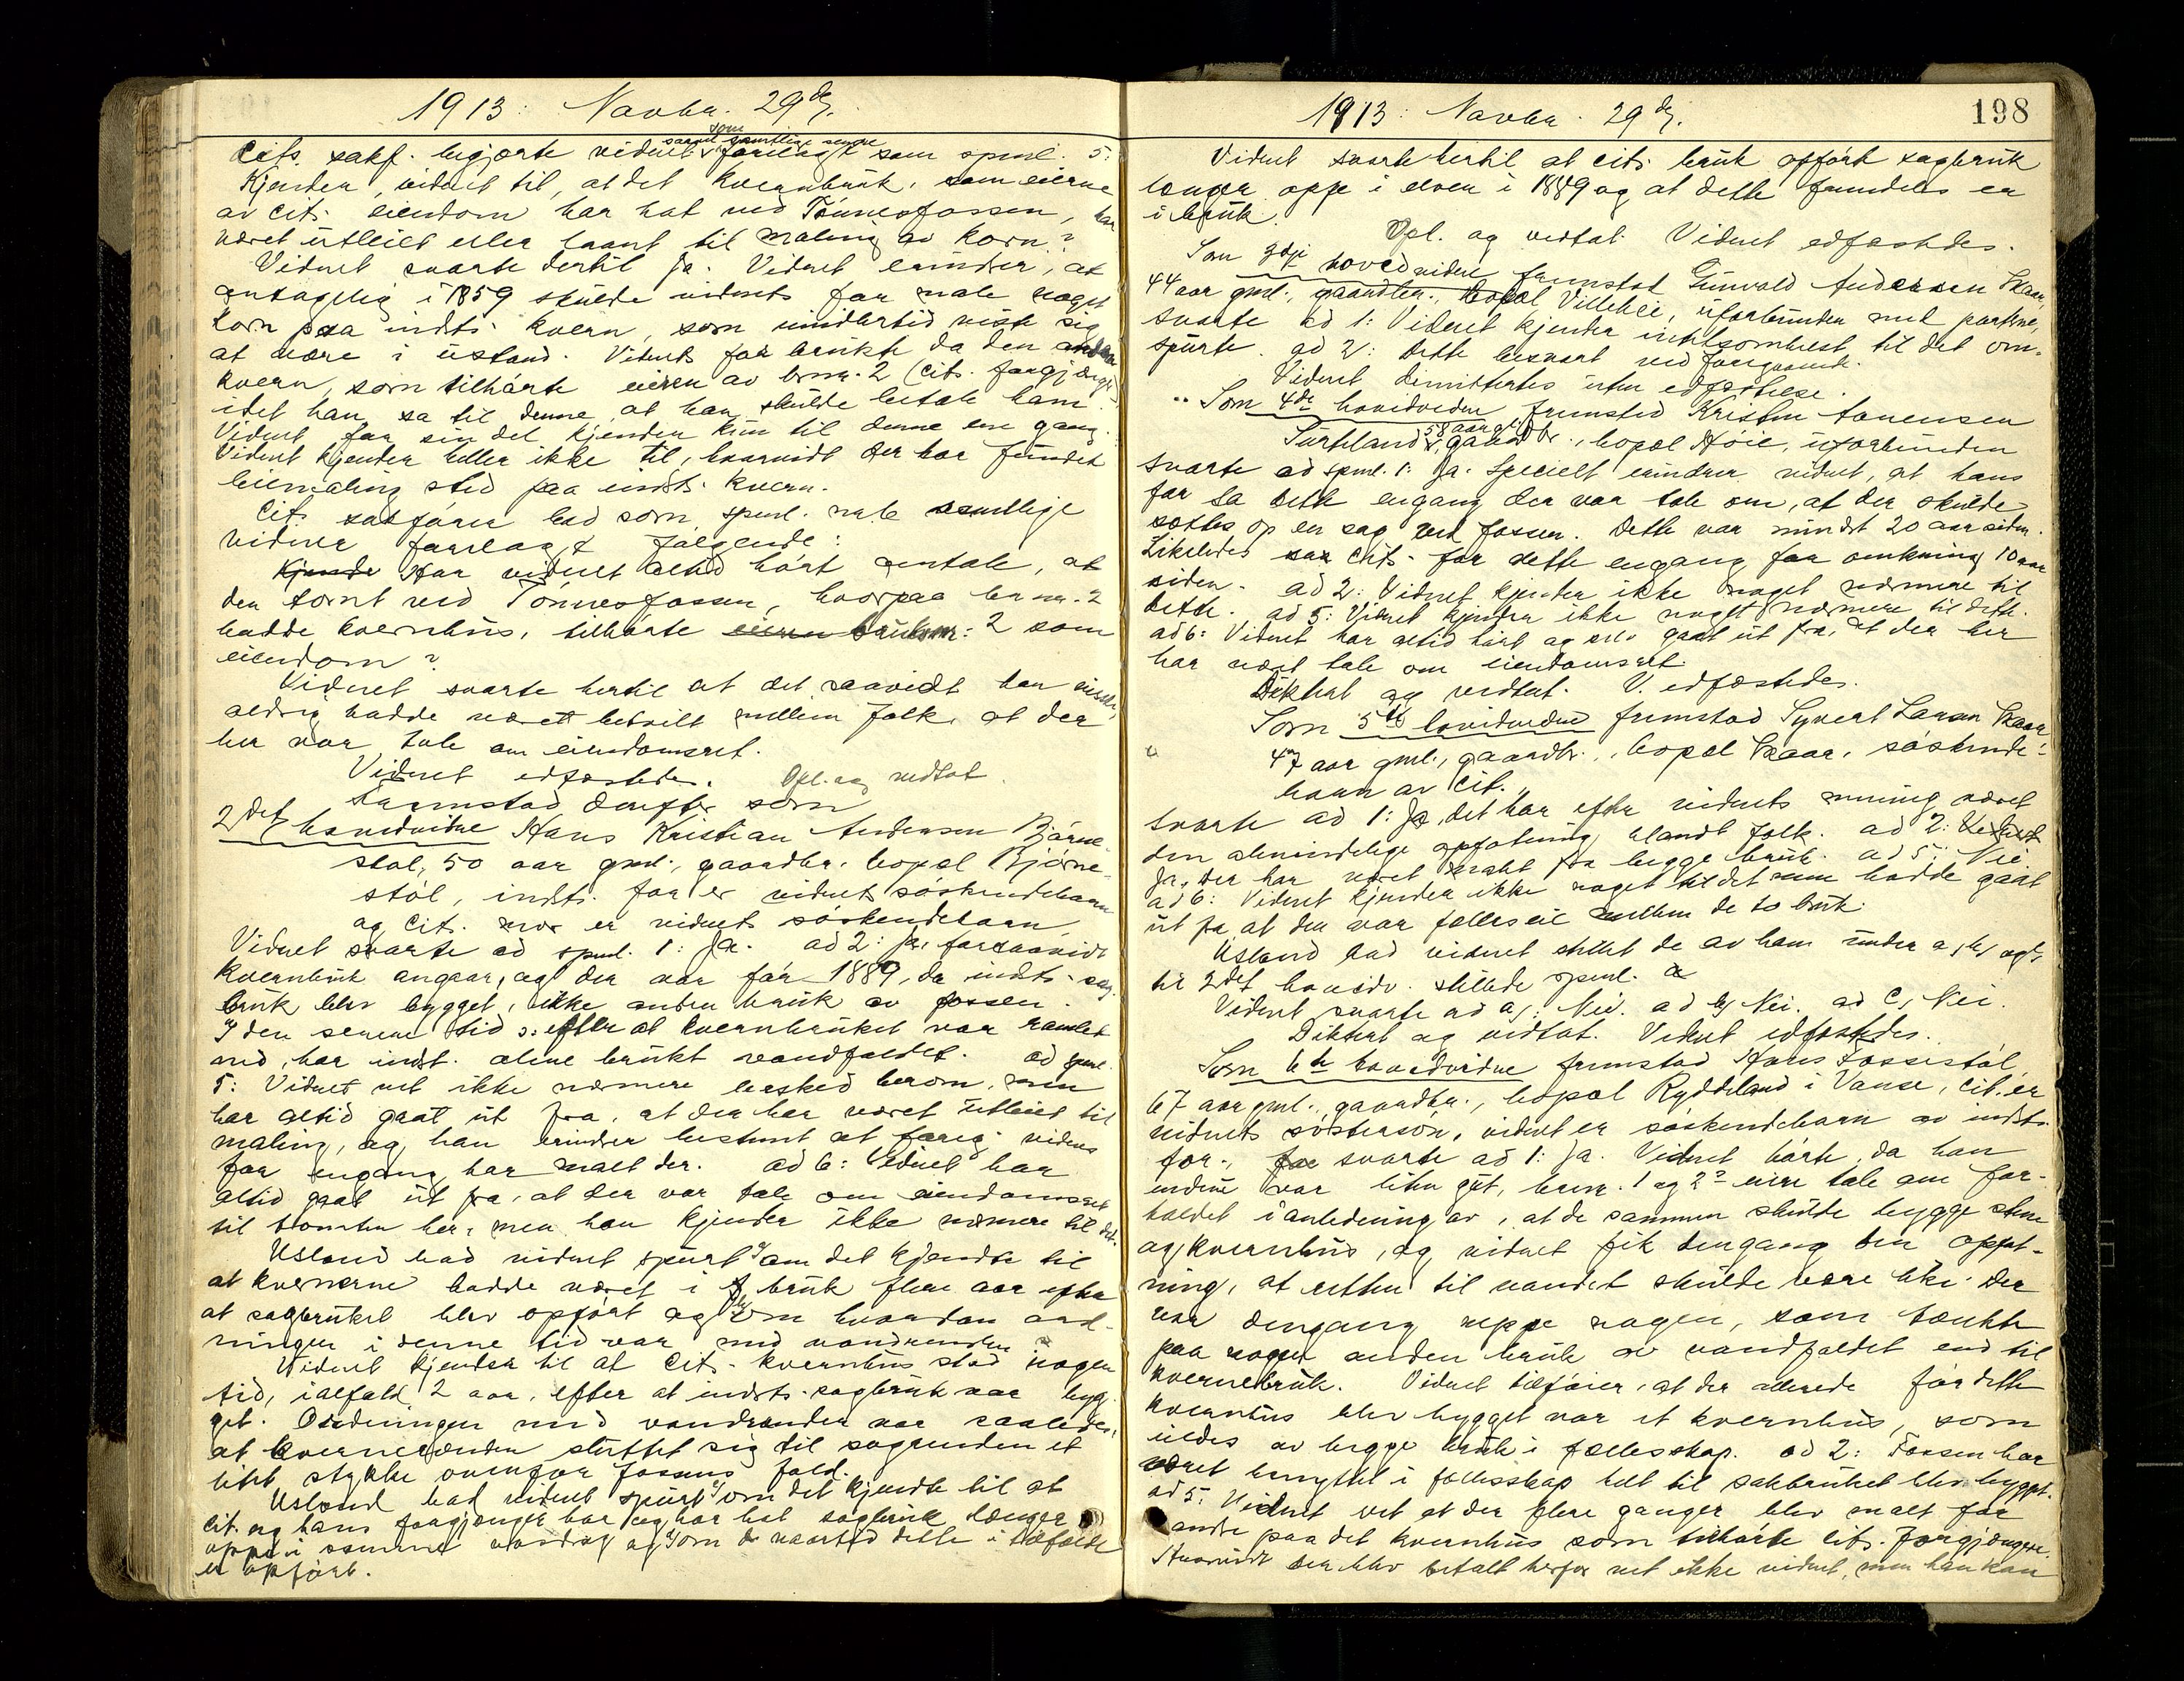 1913: Novbr. 29de.
som
samt samtlige senere
Cits. sakf. begjærte vidnet forelagt som spml. 5:
Kjender vidnet til, at det kvernbruk, som eierne
av cits. eiendom har hat ved Tønnesfossen, har
været utleiet eller laant til maling av korn?
Vidnet svarte dertil ja. Vidnet erindrer, at
antagelig i 1859 skulde vidnets far male noget
korn paa indts. kvern, som imidlertid viste sig
at være i ustand. Vidnets far brukte da den anden
kvern, som tilhørte eieren av brnr. 2 (cits. forgjænger)
idet han sa til denne at han skulde betale ham.
Vidnet for sin del kjender kun til denne ene gang.
Vidnet kjender heller ikke til, hvorvidt der har fundet
leiemaling sted paa indts. kvern.
Cit. sakfører bad som spml. nr 6 samtlige
vidner forelagt følgende:
Kjende Har vidnet altid hørt omtale, at
den tomt ved Tønnesfossen, hvorpaa br.nr. 2
hadde kvernhus, tilhørte eieren bruksnr: 2 som
eiendom?
Vidnet svarte hertil at det saavidt han visste,
aldrig hadde været betvilt mellem folk, at der
her var tale om eiendomsret.
Vidnet edfæstedes. Opl. og vedtat.
Fremstod derefter som
2det hovedvidne Hans Kristian Andersen Bjørne-
støl, 50 aar gml., gaardbr. bopæl Bjørne-
støl, indts. far er vidnets søskendebarn
og cit. mor er vidnets søskendebarn
Vidnet svarte ad spml. 1: Ja. ad 2: ja, forsaavidt
kvernbruk angaar, og der var før 1889, da indts. sag-
bruk blev bygget, ikke anden bruk av fossen.
I den senere tid o: efter at kvernbruket var ramlet
ned, har indst. alene brukt vandfaldet. ad spml.
5: Vidnet vet ikke nærmere besked herom, men
har altid gaat ut fra, at der har været utleiet til
maling, og han erindrer bestemt at forrig vidnes
far engang har malt der. ad 6: Vidnet har
altid gaat ut fra, at der var tale om eiendomsret
til tomten her, men han kjender ikke nærmere til det.
Usland bad vidnet spurt a/ om det kjendte til
at kvernerne hadde været i bruk flere aar efter
at sagbruket blev opført og b/ om hvordan ord-
ningen i denne tid var med vandrenden
Vidnet kjender til at cits. kvernhus stod nogen
tid, ialfald 2 aar, efter at indsts. sagbruk var byg-
get. Ordningen med vandrenden var saaledes,
at kvernrenden støttet sig til sagrenden et
litet stykke ovenfor fossens fald.
Usland bad vidnet spurt c/ om det kjendte til at
cit. og hans forgjænger har og har hat sagbruk længer
oppe i samme vasdrag og d/ om de naartid dette i tilfælde
er opført.
198
1913: Novbr. 29de.
Vidnet svarte hertil at cits. bruk opført sagbruk
længer oppe i elven i 1889 og at dette fremdeles er
i bruk.
Opl. og vedtat. Vidnet edfæstedes.
Som 3dje hovedvidne fremstod Gunvald Andersen Skaar,
44 aar gml., gaardbr., bopæl Villebei, uforbunden med parterne,
svarte ad 1: Vidnet kjender intetsomhelst til det om-
spurte. ad 2: Dette besvart ved foregaaende.
Vidnet dimitteredes uten edfæstelse.
Som 4de hovedvidne fremstod Kristen Tønnesen
58 aar gl
Surteland, gaardbr., bopæl Høie, uforbunden
svarte ad spml. 1: Ja. Specielt erindrer vidnet, at hans
far sa dette engang der var tale om, at der skulde
sættes op en sag ved fossen. Dette var mindst 20 aar siden.
Likeledes sa cits. far dette engang for omkring 10 aar
siden. ad 2: Vidnet kjender ikke noget nærmere til
dette. ad 5: Vidnet kjender ikke noget nærmere til dette.
ad 6: Vidnet har altid hørt og gaat ut fra, at der her
har været tale om eiendomsret.
Diktert og vedtat. V. edfæstedes.
Som 5te hovedvidne fremstod Syvert Larsen Skaar
47 aar gml., gaardbr., bopæl Skaar, søskende-
barn av cit.
Svarte ad 1: Ja, det har efter vidnets mening været
den almindelige opfatning blandt folk. ad 2: Vidnet
Ja, der har været malt fra begge bruk. ad 5: Nei.
ad 6: Vidnet kjender ikke noget til det men hadde gaat
ut fra at den var fælleseie mellem de to bruk.
Usland bad vidnet stillet de av ham under a, b, og c
til 2det hovedv. stillede spml.
Vidnet svarte ad a/: Nei. ad b/ Nei. ad c/ Nei.
Diktert og vedtat. Vidnet edfæstedes.
Som 6te hovedvidne fremstod Hans Fossestøl,
67 aar gml., gaardbr., bopæl Ryddeland i Vanse, cit. er
vidnets søstersøn, vidnet er søskendebarn av indsts.
far., svarte ad 1: Ja. Vidnet hørte, da han
endnu var liten gut, brnr. 1 og 2s eiere tale om for-
holdet i anledning av, at de sammen skulde bygge stem
og kvernhus, og vidnet fik dengang den opfat-
ning, at retten til vandet skulde være like. Der
var dengang neppe nogen, som tænkte
paa nogen anden bruk av vandfaldet end til
kvernebruk. Vidnet tilføier, at der allerede før dette
kvernhus blev bygget var et kvernhus, som
eiedes av begge bruk i fællesskap. ad 2: Fossen har
været benyttet i fællesskap helt til sakbruket blev bygget.
ad 5: Vidnet vet at der flere ganger blev malt for
andre paa det kvernhus som tilhørte cits. forgjængere.
Hvorvidt der blev betalt herfor vet ikke vidnet, men han kan